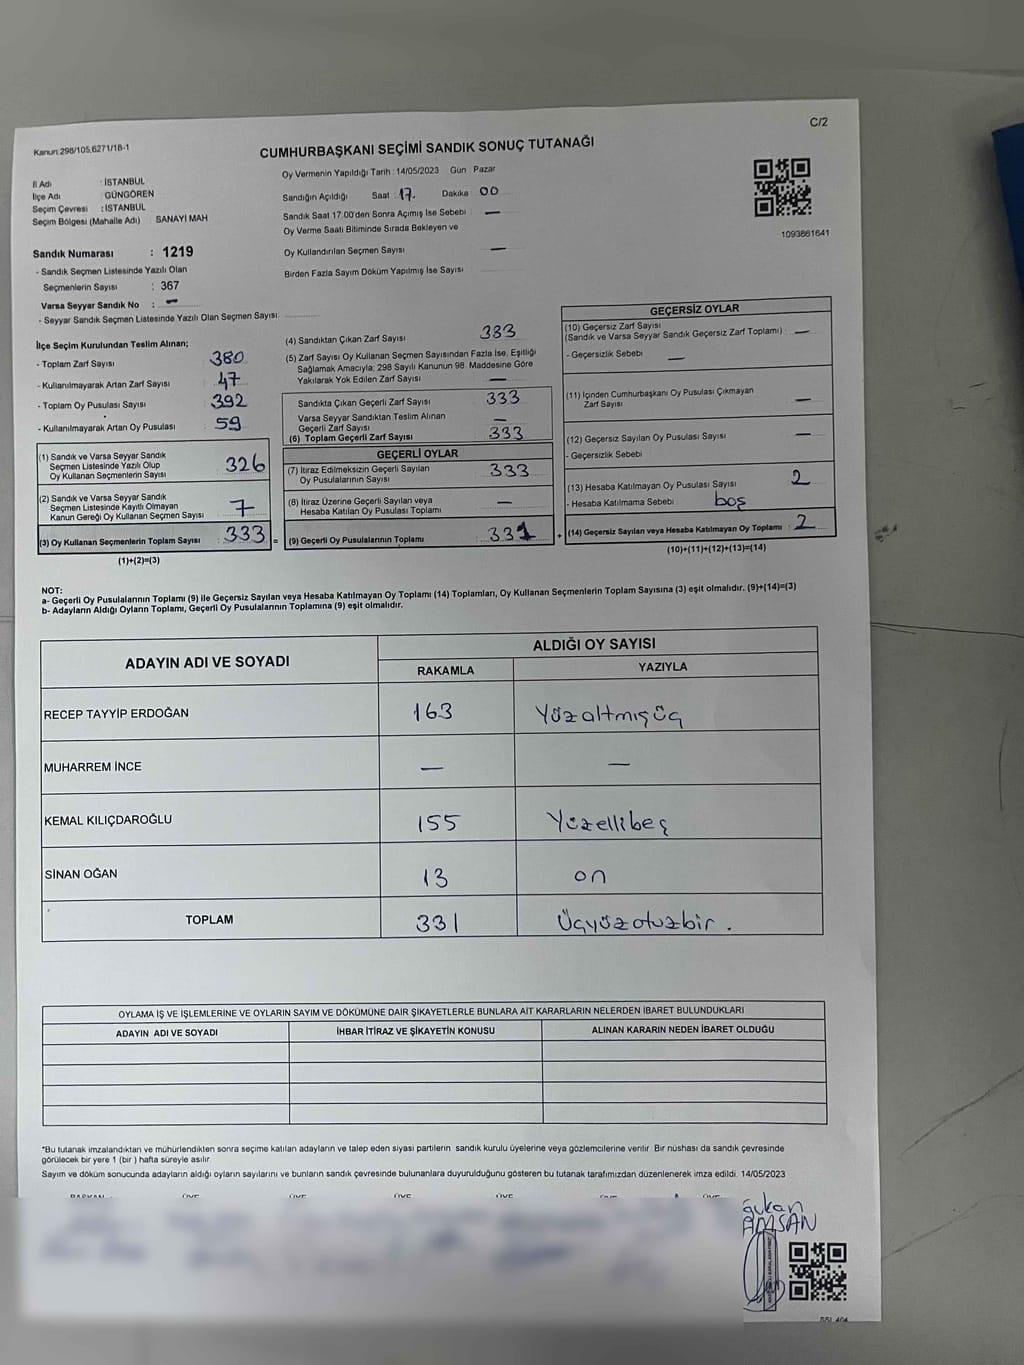 C/2
Kanun 298/105,6271/18-1
CUMHURBAŞKANI SEÇİMİ SANDIK SONUÇ TUTANAĞI
İl Adı : İSTANBUL
İlçe Adı : GÜNGÖREN
Seçim Çevresi : İSTANBUL
Seçim Bölgesi (Mahalle Adı) : SANAYİ MAH
Sandık Numarası : 1219
- Sandık Seçmen Listesinde Yazılı Olan
Seçmenlerin Sayısı : 367
Varsa Seyyar Sandık No : —
- Seyyar Sandık Seçmen Listesinde Yazılı Olan Seçmen Sayısı
Oy Vermenin Yapıldığı Tarih : 14/05/2023 Gün Pazar
Sandığın Açıldığı Saat 17. Dakika 00
Sandık Saat 17:00'den Sonra Açılmış İse Sebebi —
Oy Verme Saati Bitiminde Sırada Bekleyen ve
Oy Kullandırılan Seçmen Sayısı —
Birden Fazla Sayım Döküm Yapılmış İse Sayısı
1093861641
İlçe Seçim Kurulundan Teslim Alınan;
- Toplam Zarf Sayısı 380
- Kullanılmayarak Artan Zarf Sayısı 47
- Toplam Oy Pusulası Sayısı 392
- Kullanılmayarak Artan Oy Pusulası : 59
(1) Sandık ve Varsa Seyyar Sandık
Seçmen Listesinde Yazılı Olup
Oy Kullanan Seçmenlerin Sayısı 326
(2) Sandık ve Varsa Seyyar Sandık
Seçmen Listesinde Kayıtlı Olmayan
Kanun Gereği Oy Kullanan Seçmen Sayısı 7
(3) Oy Kullanan Seçmenlerin Toplam Sayısı : 333 =
(1)+(2)=(3)
(4) Sandıktan Çıkan Zarf Sayısı 333
(5) Zarf Sayısı Oy Kullanan Seçmen Sayısından Fazla İse, Eşitliği
Sağlamak Amacıyla; 298 Sayılı Kanunun 98. Maddesine Göre
Yakılarak Yok Edilen Zarf Sayısı —
Sandıkta Çıkan Geçerli Zarf Sayısı 333
Varsa Seyyar Sandıktan Teslim Alınan
Geçerli Zarf Sayısı —
(6) Toplam Geçerli Zarf Sayısı 333
GEÇERLİ OYLAR
(7) İtiraz Edilmeksizin Geçerli Sayılan
Oy Pusulalarının Sayısı 333
(8) İtiraz Üzerine Geçerli Sayılan veya
Hesaba Katılan Oy Pusulası Toplamı —
(9) Geçerli Oy Pusulalarının Toplamı : 331 +
GEÇERSİZ OYLAR
(10) Geçersiz Zarf Sayısı
(Sandık ve Varsa Seyyar Sandık Geçersiz Zarf Toplamı) : —
- Geçersizlik Sebebi —
(11) İçinden Cumhurbaşkanı Oy Pusulası Çıkmayan
Zarf Sayısı —
(12) Geçersiz Sayılan Oy Pusulası Sayısı —
- Geçersizlik Sebebi
(13) Hesaba Katılmayan Oy Pusulası Sayısı 2
- Hesaba Katılmama Sebebi boş
(14) Geçersiz Sayılan veya Hesaba Katılmayan Oy Toplamı : 2
(10)+(11)+(12)+(13)=(14)
NOT:
a- Geçerli Oy Pusulalarının Toplamı (9) ile Geçersiz Sayılan veya Hesaba Katılmayan Oy Toplamı (14) Toplamları, Oy Kullanan Seçmenlerin Toplam Sayısına (3) eşit olmalıdır. (9)+(14)=(3)
b- Adayların Aldığı Oyların Toplamı, Geçerli Oy Pusulalarının Toplamına (9) eşit olmalıdır.
ADAYIN ADI VE SOYADI
ALDIĞI OY SAYISI
RAKAMLA YAZIYLA
RECEP TAYYİP ERDOĞAN 163 Yüzaltmışüç
MUHARREM İNCE — —
KEMAL KILIÇDAROĞLU 155 Yüzellibeş
SİNAN OĞAN 13 on
TOPLAM 331 Üçyüzotuzbir.
OYLAMA İŞ VE İŞLEMLERİNE VE OYLARIN SAYIM VE DÖKÜMÜNE DAİR ŞİKAYETLERLE BUNLARA AİT KARARLARIN NELERDEN İBARET BULUNDUKLARI
ADAYIN ADI VE SOYADI İHBAR İTİRAZ VE ŞİKAYETİN KONUSU ALINAN KARARIN NEDEN İBARET OLDUĞU
*Bu tutanak imzalandıktan ve mühürlendikten sonra seçime katılan adayların ve talep eden siyasi partilerin sandık kurulu üyelerine veya gözlemcilerine verilir. Bir nüshası da sandık çevresinde
görülecek bir yere 1 (bir) hafta süreyle asılır.
Sayım ve döküm sonucunda adayların aldığı oyların sayılarını ve bunların sandık çevresinde bulunanlara duyurulduğunu gösteren bu tutanak tarafımızdan düzenlenerek imza edildi. 14/05/2023
BAŞKAN ÜYE ÜYE ÜYE ÜYE ÜYE